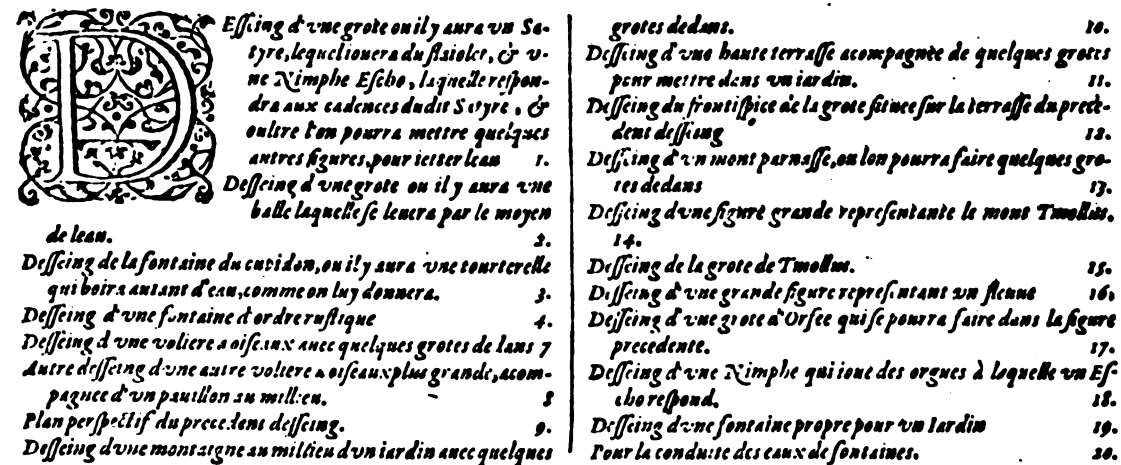 DEsseing d'vne grote ou il y aura vn Sa-
tyre, lequel iouera du flaiolet, & v-
ne Nimphe Escho, laquelle respon-
dra aux cadences dudit Satyre, &
oultre l'on pourra mettre quelques
autres figures, pour ietter leau 1.
Desseing d'vne grote ou il y aura vne
balle laquelle se leuera par le moyen
de leau. 2.
Desseing de la fontaine du cupidon, ou il y aura vne tourterelle
qui boira autant d'eau, comme on luy donnera. 3.
Desseing d'vne fontaine d'ordre rustique 4.
Desseing d'vne voliere a oiseaux auec quelques grotes dedans 7
Autre desseing d'vne autre voliere a oiseaux plus grande, acom-
pagnee d'vn pauillon au milieu. 8
Plan perspectif du precedent desseing. 9.
Desseing d'vne montaigne au milieu d'vn iardin auec quelques
grotes dedans. 10.
Desseing d'vne haute terrasse acompagnée de quelques grotes
pour mettre dans vn iardin. 11.
Desseing du frontispice de la grote situee sur la terrasse du prece-
dent desseing 12.
Desseing d'vn mont parnasse, ou lon pourra faire quelques gro-
tes dedans 13.
Desseing d'vne figure grande representante le mont Tmollus.
14.
Desseing de la grote de Tmollus. 15.
Desseing d'vne grande figure representant vn fleuue 16.
Desseing d'vne grote d'Orfee qui se pourra faire dans la figure
precedente. 17.
Desseing d'vne Nimphe qui ioue des orgues à laquelle vn Es-
cho respond. 18.
Desseing d'vne fontaine propre pour vn Iardin 19.
Pour la conduite des eaux de fontaines. 20.